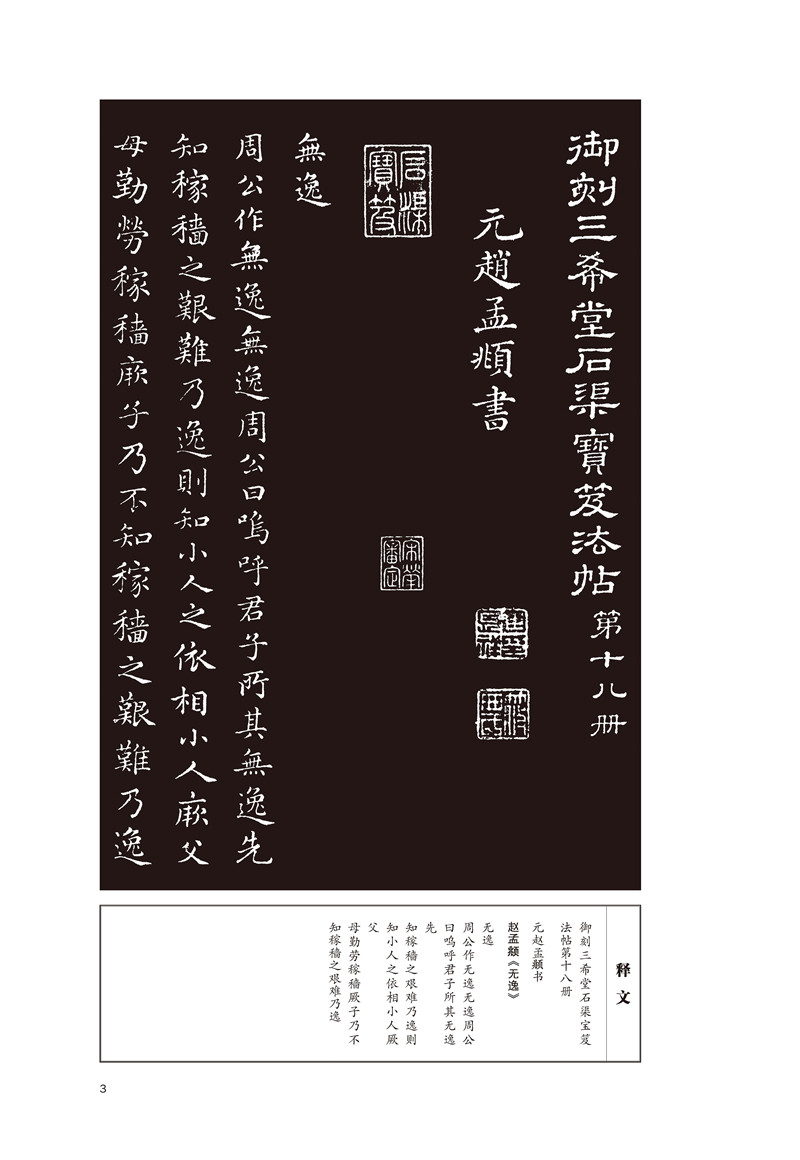 御刻三希堂石渠寶笈法帖第十八册
元趙孟頫書
石渠寶笈
無逸
周公作無逸無逸周公曰嗚呼君子所其無逸先
知稼穡之艱難乃逸則知小人之依相小人厥父
母勤勞稼穡厥子乃不知稼穡之艱難乃逸
释文
御刻三希堂石渠宝笈
法帖第十八册
元赵孟頫书
赵孟頫《无逸》
无逸
周公作无逸无逸周公
曰呜呼君子所其无逸
先
知稼穑之艰难乃逸则
知小人之依相小人厥
父
母勤劳稼穑厥子乃不
知稼穑之艰难乃逸
3